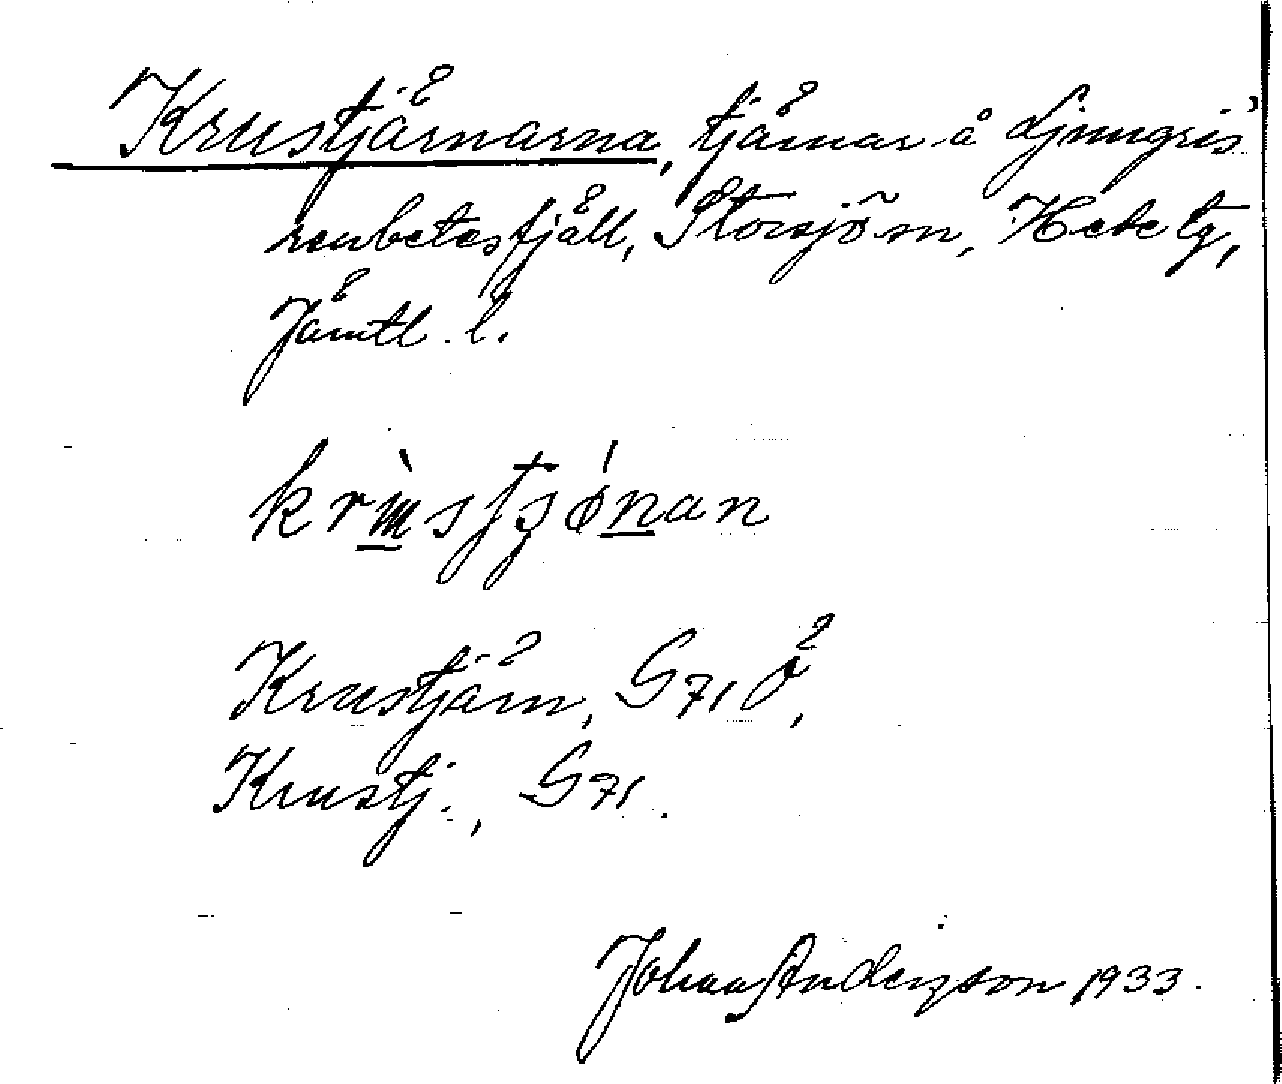 Krustjärnarna, tjärnar å Ljungris
renbetesfjäll, Storsjö sn, Hede tg,
Jämtl. l.
Krustjärn, G71Ö,
Krustj., G71.
Johan Anderzson 1933.